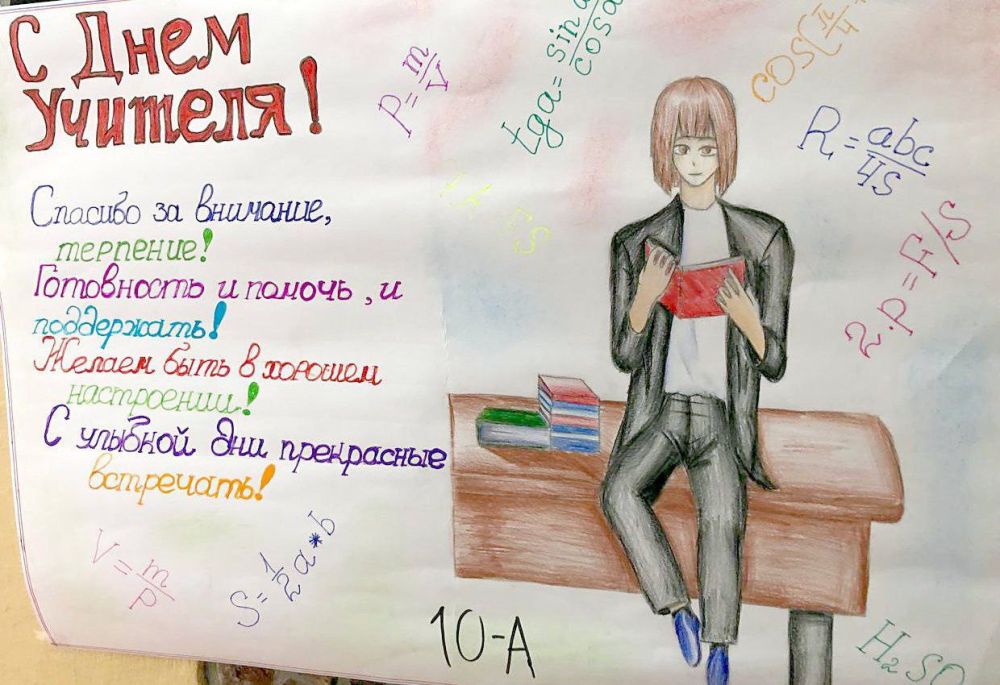 С Днем
Учителя!
Спасибо за внимание,
терпение!
Готовность и помочь, и
поддержать!
Желаем быть в хорошем
настроении!
С улыбкой дни прекрасные
встречать!
P = m/V
tga = sina/cosa
cos(π/4
R = abc/4S
2.p = F/S
V = m/P
S = 1/2 a * b
10-А
H₂SO